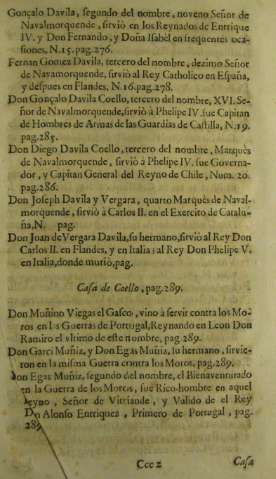 Gonçalo Davila, segundo del nombre, noveno Señor de
Navalmorquende, sirviò en los Reynados de Enrique
IV. y Don Fernando, y Doña Isabel en frequentes oca-
siones, N.15. pag.276.
Fernan Gomez Davila, tercero del nombre, dezimo Señor
de Navamorquende, sirviò al Rey Catholico en España,
y despues en Flandes, N.16. pag.278.
Don Gonçalo Davila Coello, tercero del nombre, XVI. Se-
ñor de Navalmorquende, sirviò à Phelipe IV. fue Capitan
de Hombres de Armas de las Guardias de Castilla, N.19.
pag.285.
Don Diego Davila Coello, tercero del nombre, Marquès
de Navalmorquende, sirviò à Phelipe IV. fue Governa-
dor, y Capitan General del Reyno de Chile, Num. 20.
pag.286.
Don Joseph Davila y Vergara, quarto Marquès de Naval-
morquende, sirviò à Carlos II. en el Exercito de Catalu-
ña, N. pag.
Don Juan de Vergara Davila, su hermano, sirviò al Rey Don
Carlos II. en Flandes, y en Italia; al Rey Don Phelipe V.
en Italia, donde murió, pag.
Casa de Coello, pag.289.
Don Munino Viegas el Gasco, vino à servir contra los Mo-
ros en las Guerras de Portugal, Reynando en Leon Don
Ramiro el ultimo de este nombre, pag. 289.
Don Garci Muñiz, y Don Egas Muñiz, su hermano, sirvie-
ron en la misma Guerra contra los Moros, pag. 289.
Don Egas Muñiz, segundo del nombre, el Bienaventurado
en la Guerra de los Moros, fue Rico-hombre en aquel
Reyno, Señor de y Valido de el Rey
Don Alonso Enriquez, Primero de Portugal, pag.
289.
Ccc 2 Casa